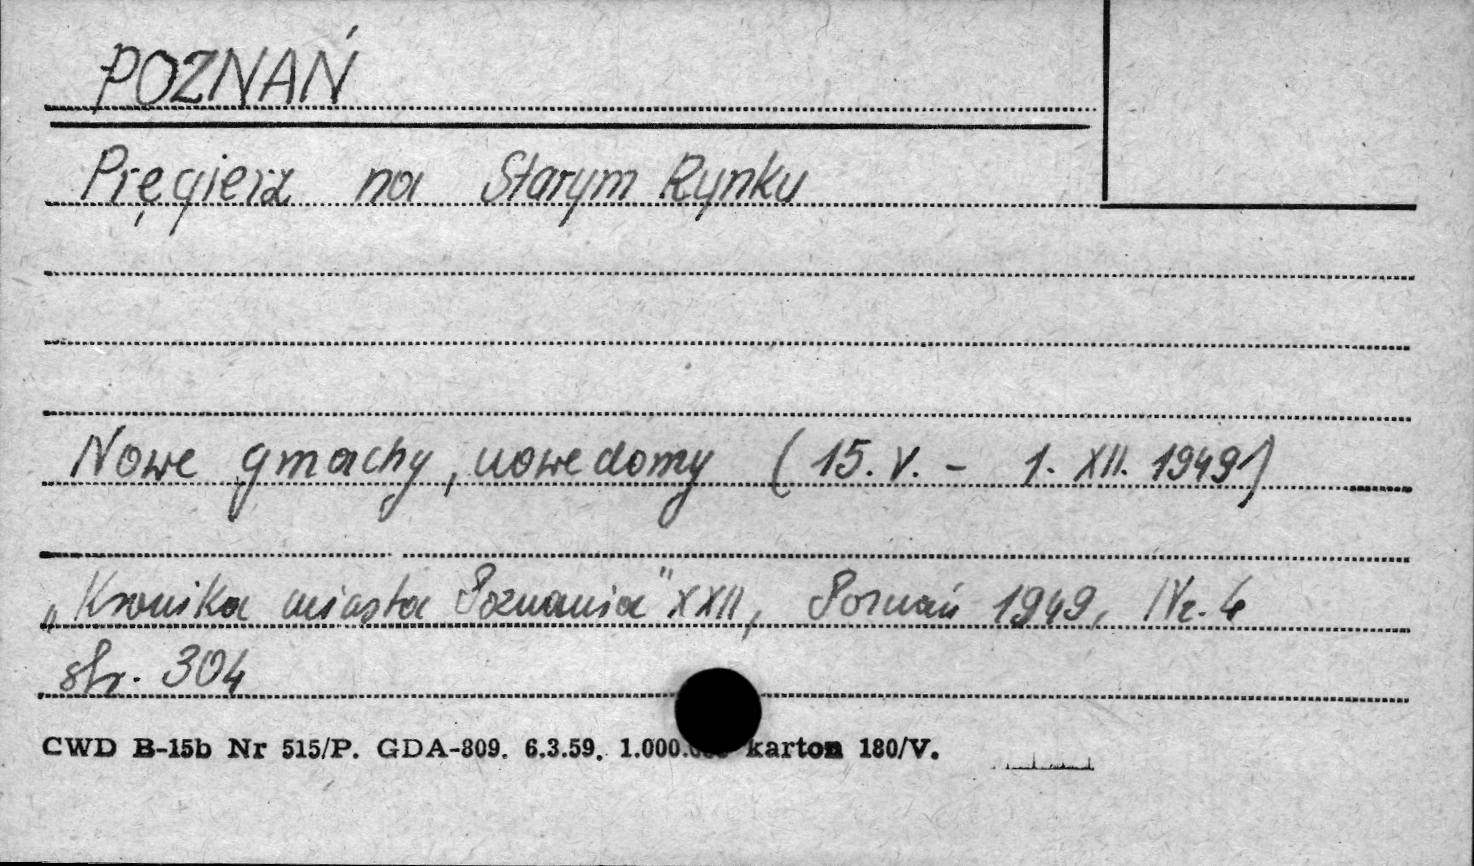 POZNAŃ
Pręgierz na Starym Rynku
Nowe gmachy, nowe domy (15. V. - 1. XII. 1949)
„Kronika miasta Poznania" XXII, Poznań 1949, Nr. 4
str. 304
CWD B-15b Nr 515/P. GDA-809. 6.3.59. 1.000. karton 180/V.